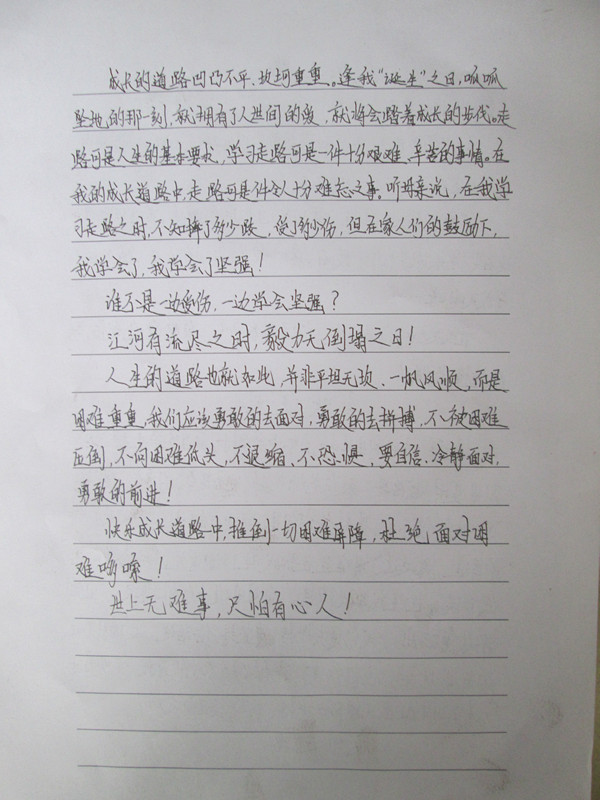 成长的道路凹凸不平、坎坷重重。逢我“诞生”之日，呱呱
坠地的那一刻，就拥有了人世间的爱，就将会踏着成长的步伐。走
路可是人生的基本要求，学习走路可是一件十分艰难、辛苦的事情。在
我的成长道路中，走路可是件令人十分难忘之事。听母亲说，在我学
习走路之时，不知摔了多少跤，受了多少伤，但在家人们的鼓励下，
我学会了，我学会了坚强！
谁不是一边受伤，一边学会坚强？
江河有流尽之时，毅力无倒塌之日！
人生的道路也就如此，并非平坦无坎、一帆风顺，而是
困难重重，我们应该勇敢的去面对，勇敢的去拼搏，不被困难
压倒，不向困难低头，不退缩、不恐惧，要自信、冷静面对，
勇敢的前进！
快乐成长道路中，推倒一切困难屏障，杜绝面对困
难哆嗦！
世上无难事，只怕有心人！